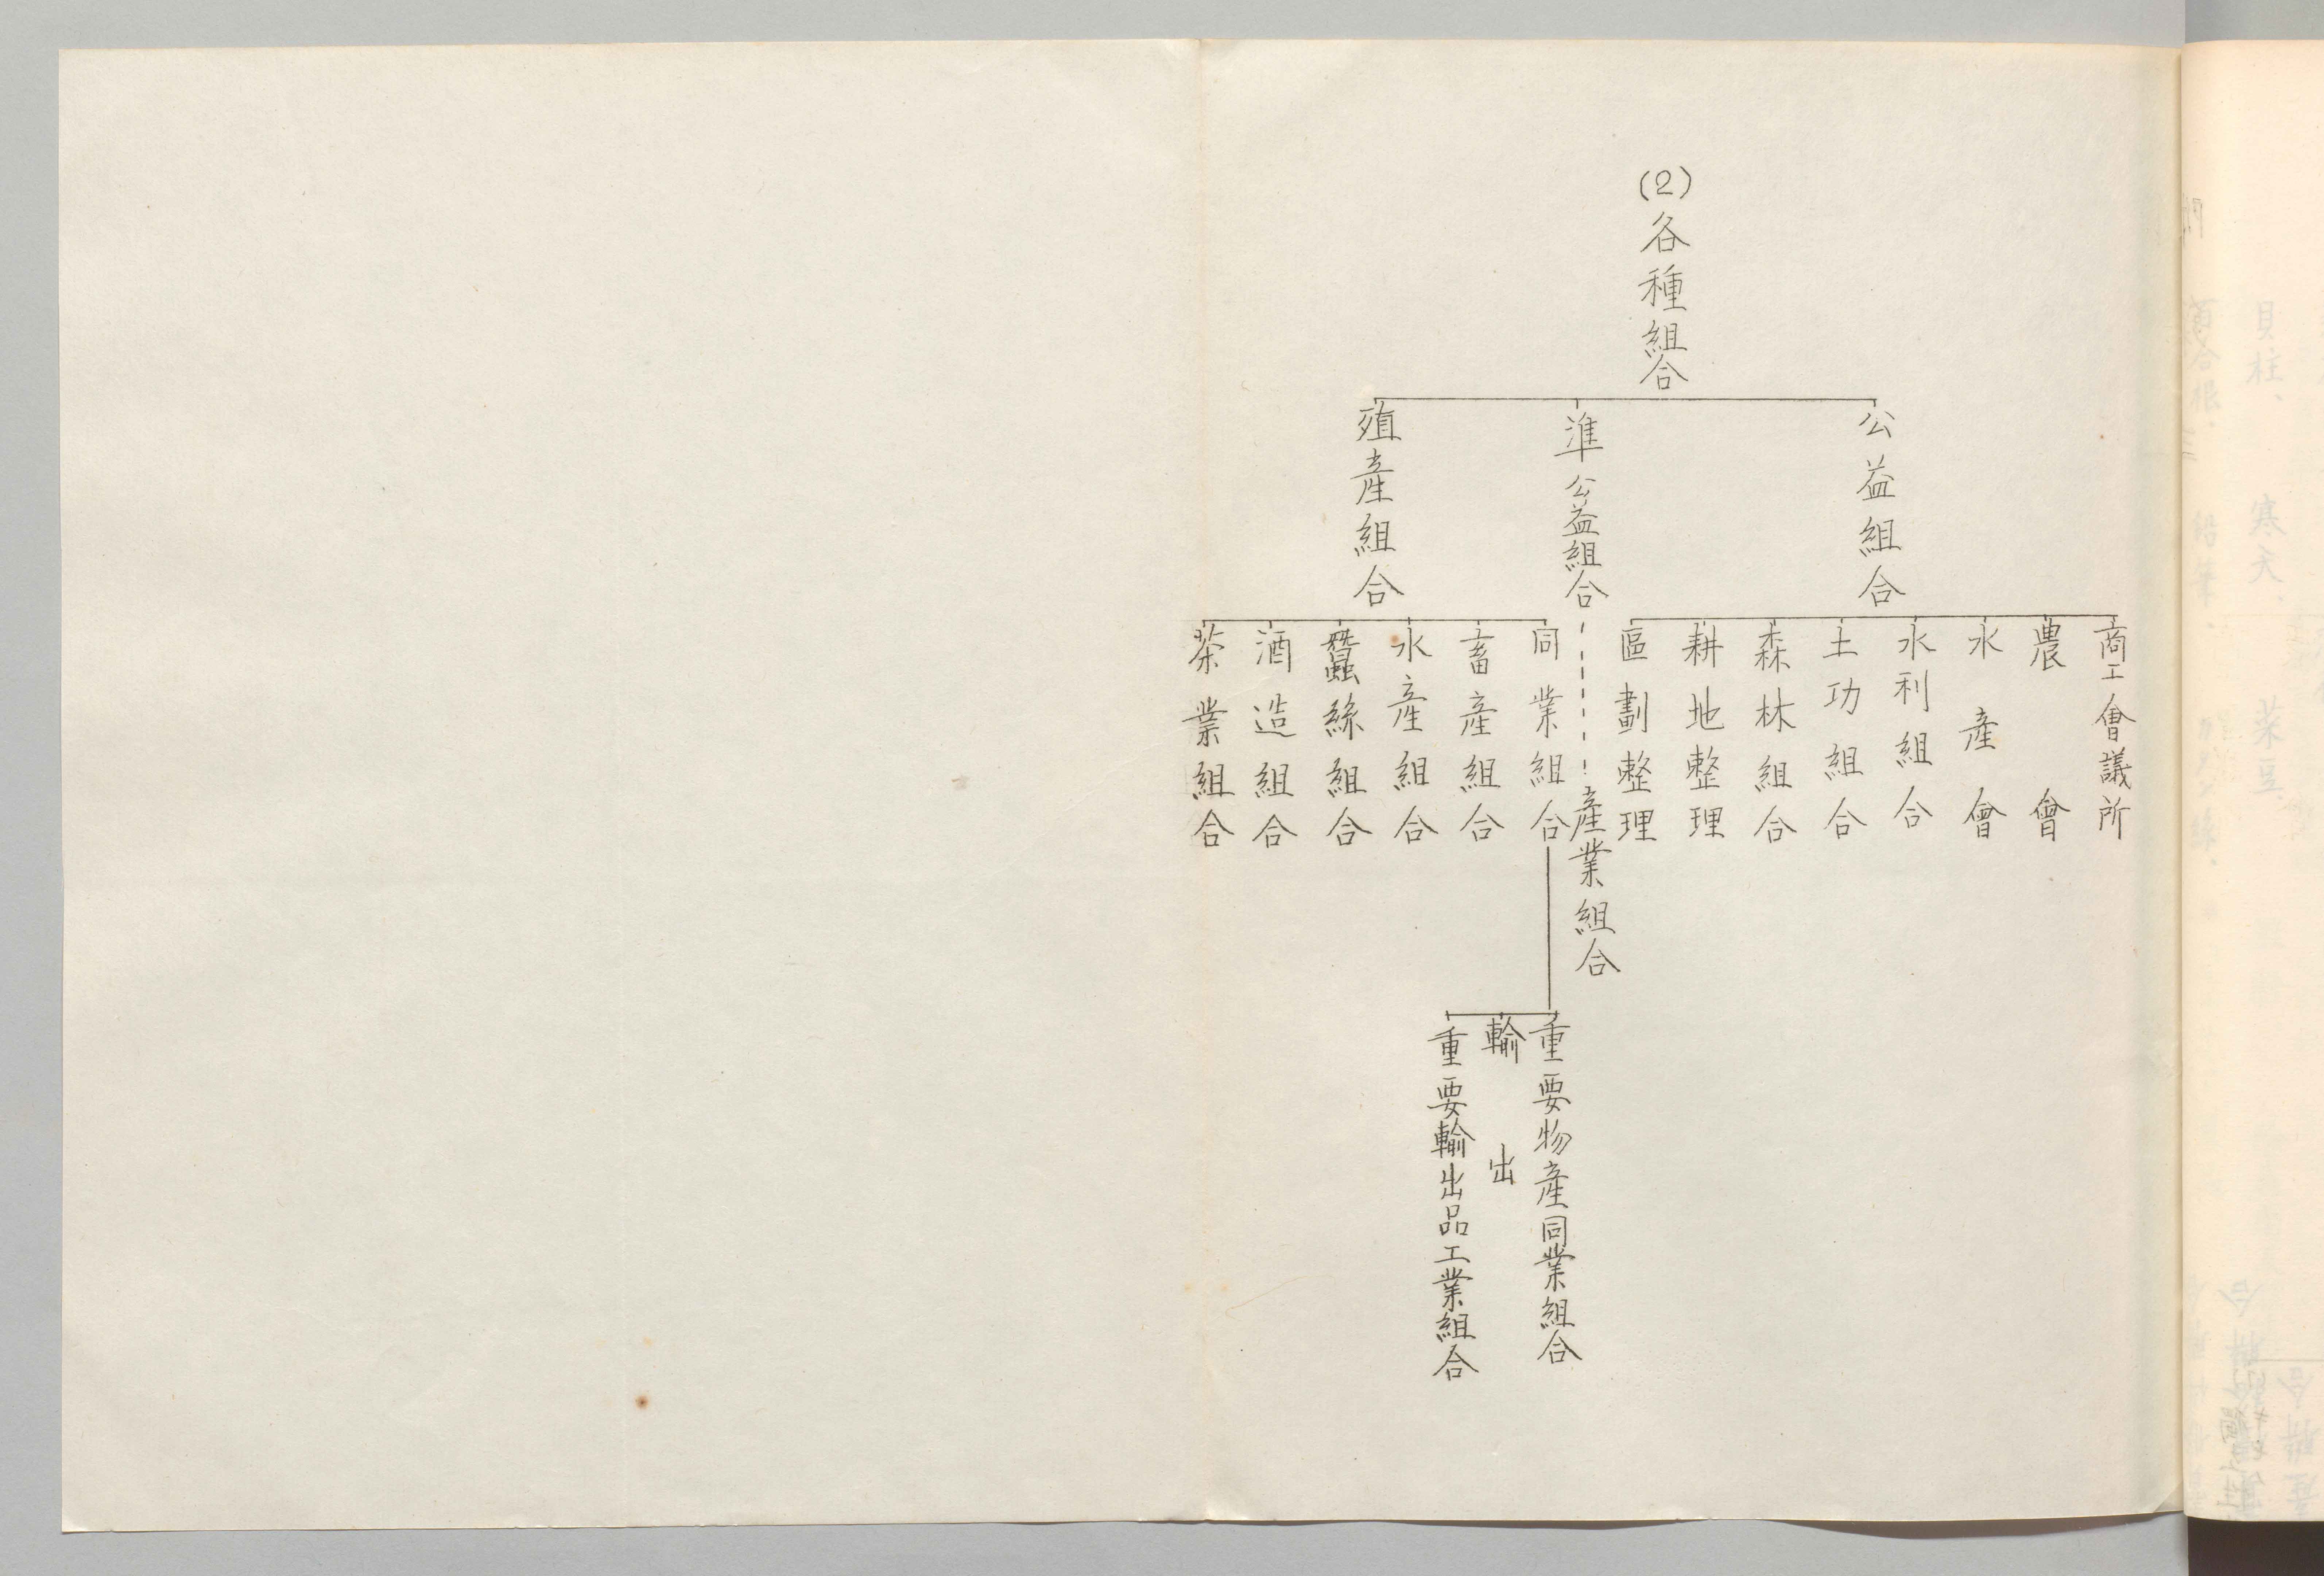 (2)各種組合
公益組合
準公益組合
殖產組合
商工會議所
農會
水產會
水利組合
土功組合
森林組合
耕地整理
區劃整理
產業組合
同業組合
畜產組合
水產組合
蠶絲組合
酒造組合
茶業組合
重要物產同業組合
輸出
重要輸出品工業組合
貝柱、寒天、菜豆